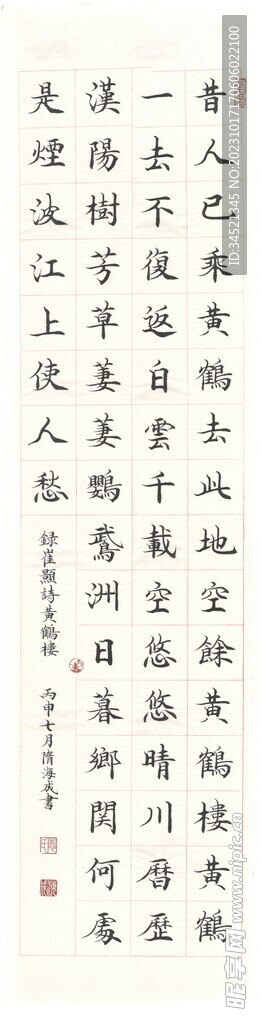 昔人已乘黄鶴去此地空餘黄鶴樓黄鶴
一去不復返白雲千載空悠悠晴川曆歷
漢陽樹芳草萋萋鸚鵡洲日暮鄉関何處
是煙波江上使人愁
録崔顥詩黄鶴樓 丙申七月隋海成書
ID:34521345 NO:20231017170606022100
昵享网 www.nipic.cn